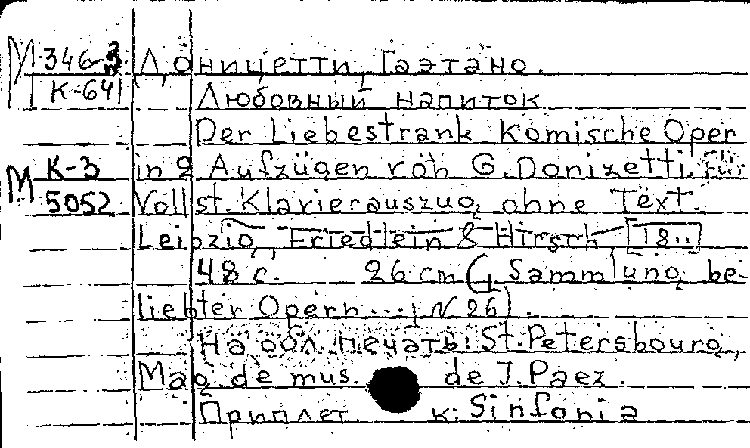 М 346-3 Доницетти, Гаэтано.
К-641 Любовный напиток
Der Liebestrank Komische Oper
М К-3 in 2 Aufzügen von G. Donizetti. Für
5052 Vollst. Klavierauszug ohne Text.
Leipzig, Friedlein & Hirsch, [18..]
48 с. 26 cm (Sammlung be-
liebter Opern... N 26).
На обл. печать: St. Petersbourg,
Mag. de mus. de J. Paez.
Приплет к: Sinfonia